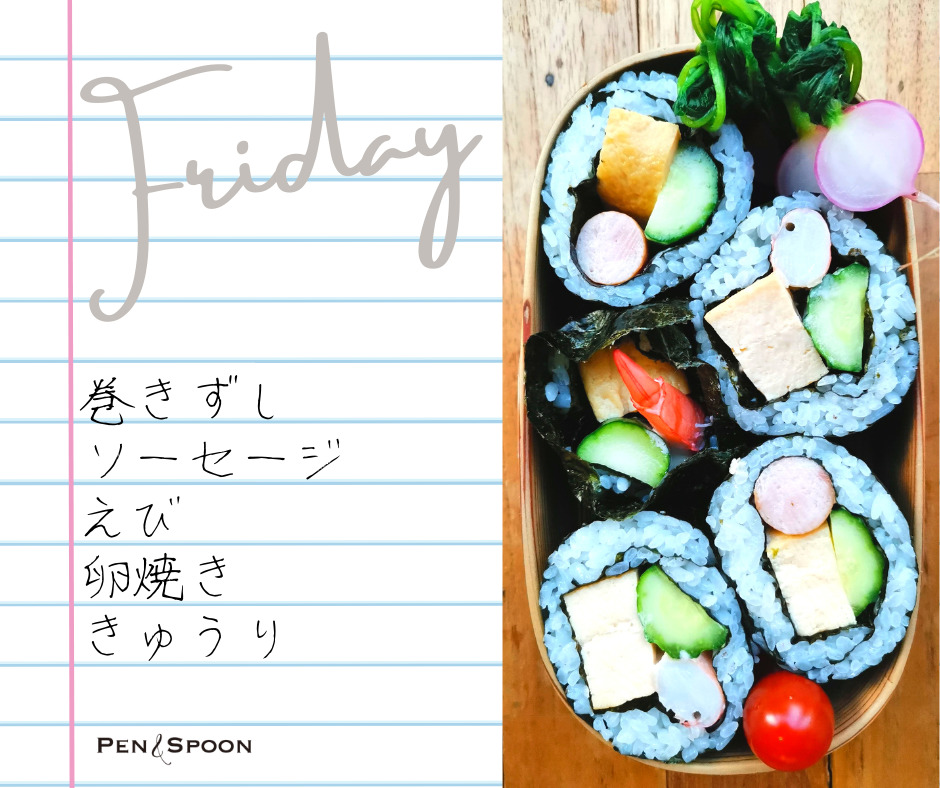 Friday
巻きずし
ソーセージ
えび
卵焼き
きゅうり
PEN&SPOON